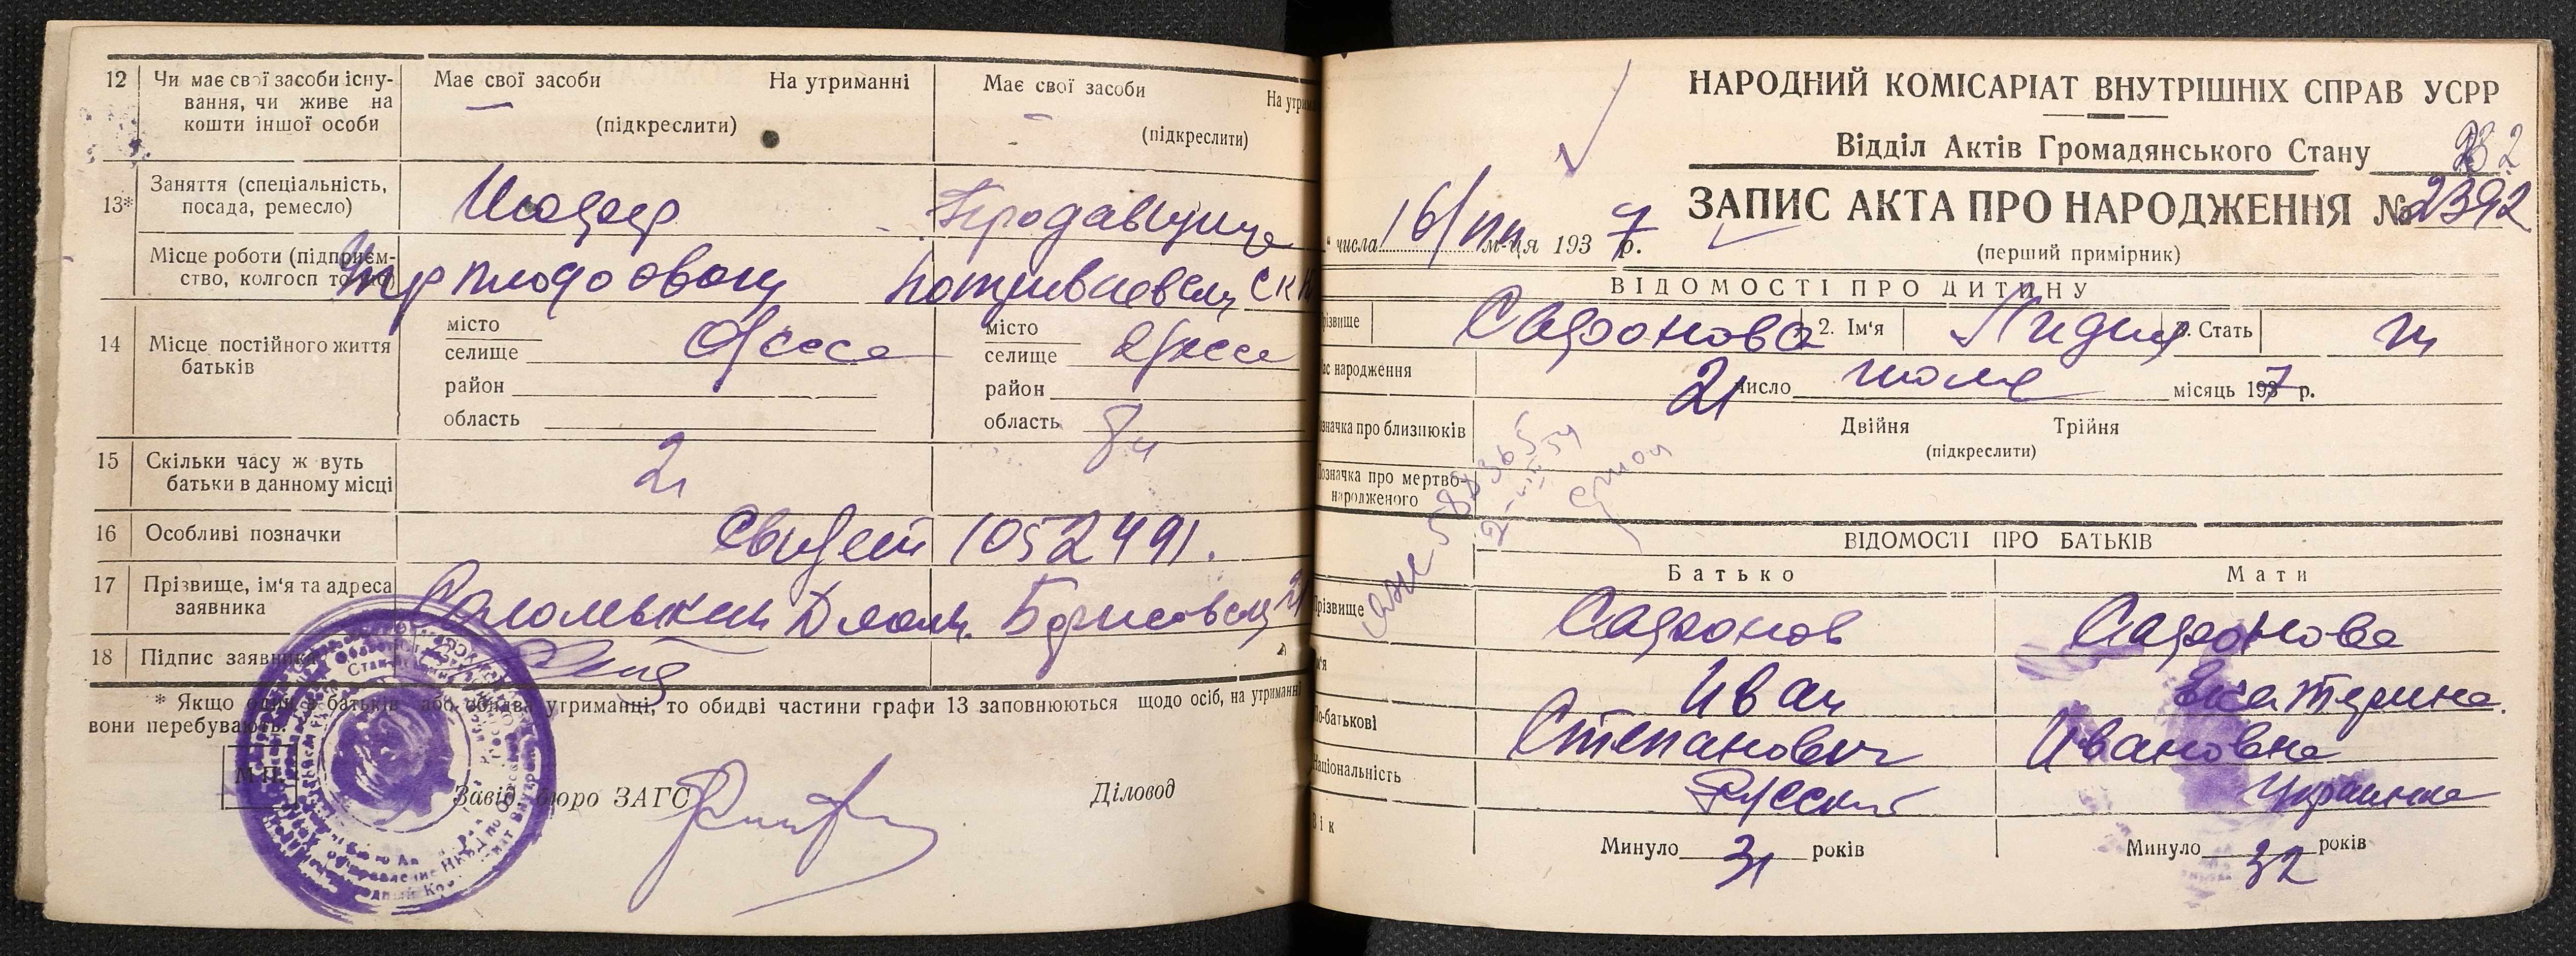 12 Чи має свої засоби існування, чи живе на кошти іншої особи
Має свої засоби На утриманні
(підкреслити)
Має свої засоби На утрим
(підкреслити)
13* Заняття (спеціальність, посада, ремесло)
Продавщица
Місце роботи (підприємство, колгосп тощо)
плодоовощ
14 Місце постійного життя батьків
місто
селище Одесса
район
область
місто
селище Одесса
район
область
15 Скільки часу ж вуть батьки в данному місці
2
16 Особливі позначки
Свидет 1052491.
17 Прізвище, ім'я та адреса заявника
18 Підпис заявника
* Якщо один з батьків або обидва утриманці, то обидві частини графи 13 заповнюються щодо осіб, на утриманні
вони перебувають.
М.П.
Завід. бюро ЗАГС Діловод
НАРОДНИЙ КОМІСАРІАТ ВНУТРІШНІХ СПРАВ УСРР
Відділ Актів Громадянського Стану
ЗАПИС АКТА ПРО НАРОДЖЕННЯ № 2392
" числа 16/ м-ця 1937 р.
(перший примірник)
ВІДОМОСТІ ПРО ДИТИНУ
різвище Сафонова 2. Ім'я Лидия 3. Стать
ас народження 21 число июля місяць 1937 р.
значка про близнюків Двійня Трійня
(підкреслити)
Позначка про мертвонародженого
ВІДОМОСТІ ПРО БАТЬКІВ
Батько Мати
Прізвище Сафонов Сафонова
м'я Иван Екатерина.
По-батькові Степанович Ивановна
Національність Русский Украинка
Вік Минуло 31 років Минуло 32 років